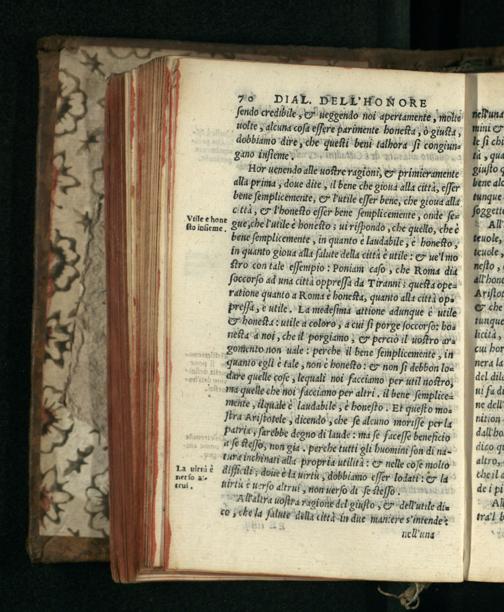 70 DIAL. DELL'HONORE
sendo credibile, & ueggendo noi apertamente, molte
uolte, alcuna cosa essere parimente honesta, ò giusta,
dobbiamo dire, che questi beni talhora si congiun-
gano insieme.
Hor uenendo alle uostre ragioni, & primieramente
alla prima, doue dite, il bene che gioua alla città, esser
bene semplicemente, & l'utile esser bene, che gioua alla
città, & l'honesto esser bene semplicemente, onde se-
gue, che l'utile è honesto; ui rispondo, che quello, che è
bene semplicemente, in quanto è laudabile, è honesto,
in quanto gioua alla salute della città è utile: & ue'l mo
stro con tale essempio: Poniam caso, che Roma dia
soccorso ad una città oppressa da Tiranni: questa ope
ratione quanto a Roma è honesta, quanto alla città op
pressa, è utile. La medesima attione adunque è utile
& honesta: utile a coloro, a cui si porge soccorso: ho-
nesta a noi, che il porgiamo, & perciò il uostro ar-
gomento non uale: perche il bene semplicemente, in
quanto egli è tale, non è honesto: & non si debbon lo-
dare quelle cose, lequali noi facciamo per util nostro,
ma quelle che noi facciamo per altri. il bene semplice-
mente, ilquale è laudabile, è honesto. Et questo mo-
stra Aristotele, dicendo, che se alcuno morisse per la
patria, sarebbe degno di laude: ma se facesse beneficio
a se stesso, non gia. perche tutti gli huomini son di na-
tura inchinati alla propria utilità: & nelle cose molto
difficili, doue è la uirtù, dobbiamo esser lodati: & la
uirtù è uerso altrui, non uerso di se stesso.
All'altra uostra ragione del giusto, & dell'utile di-
co, che la salute della città in due maniere s'intende:
nell'una
Vtile e hone
sto insieme.
La uirtù è
uerso al-
trui.